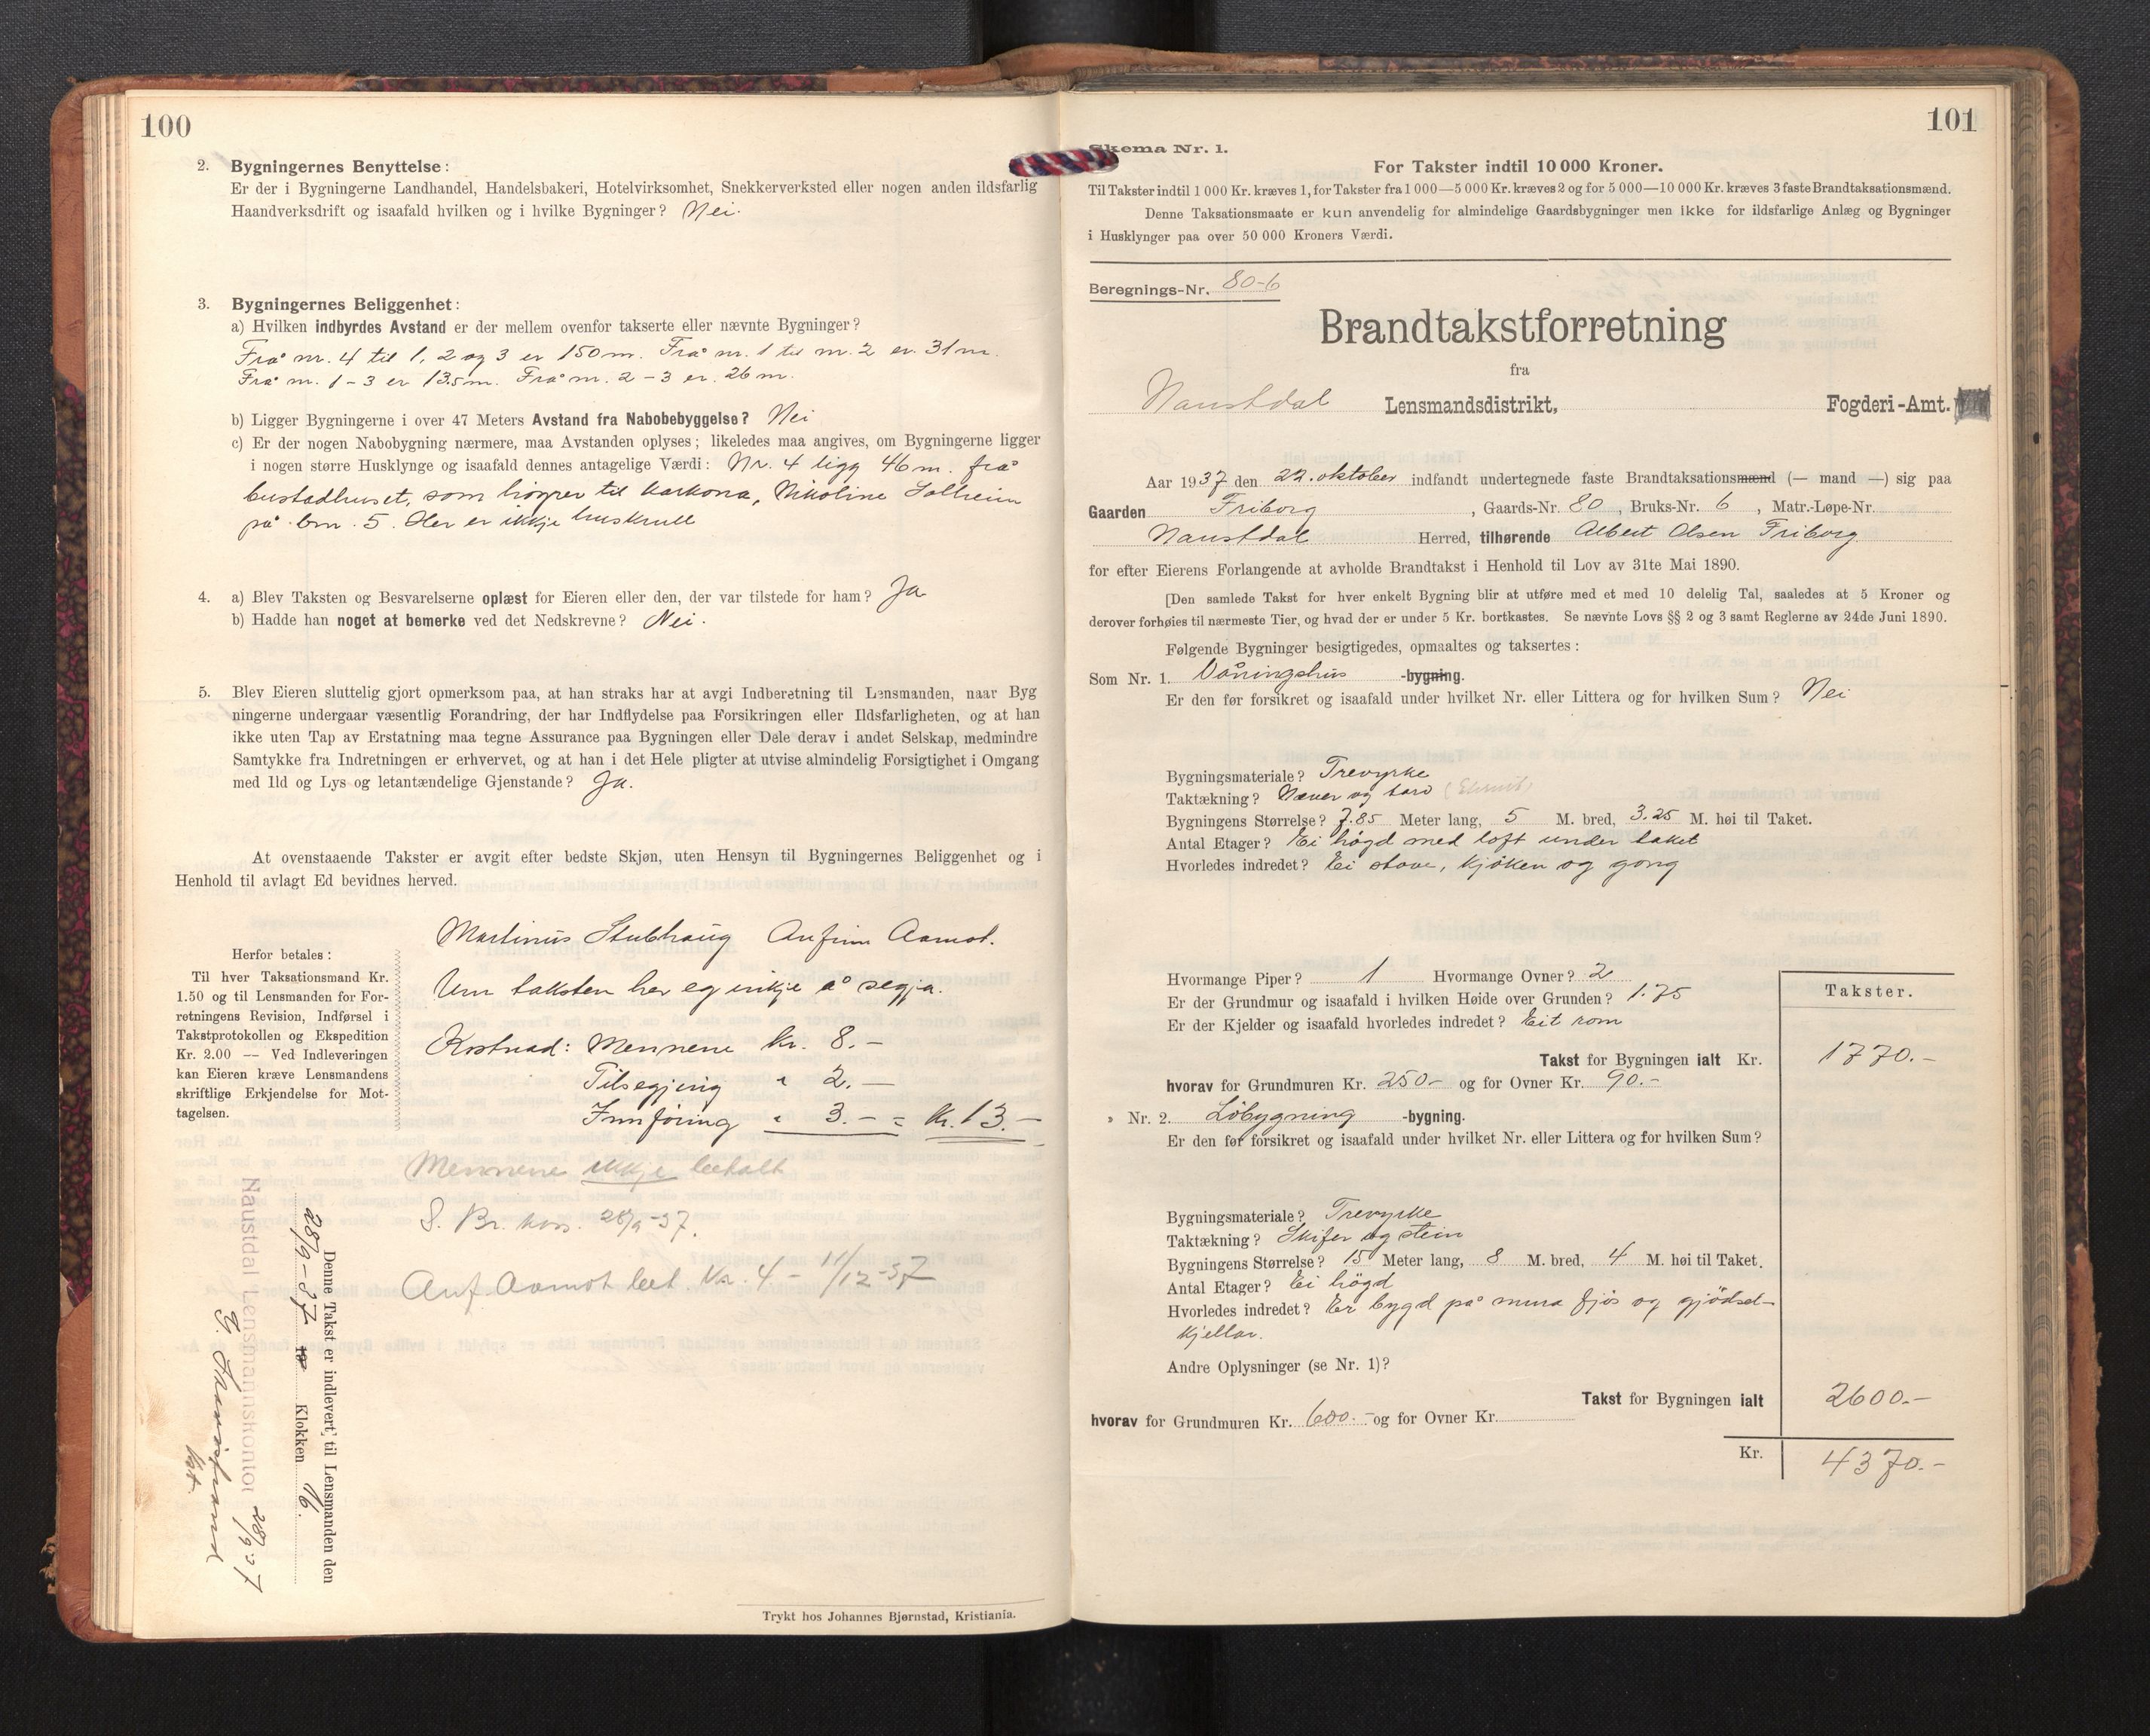 100
2. Bygningernes Benyttelse:
Er der i Bygningerne Landhandel, Handelsbakeri, Hotelvirksomhet, Snekkerverksted eller nogen anden ildsfarlig
Haandverksdrift og isaafald hvilken og i hvilke Bygninger? Nei.
3. Bygningernes Beliggenhet:
a) Hvilken indbyrdes Avstand er der mellem ovenfor takserte eller nævnte Bygninger?
Frå nr. 4 til 1, 2 og 3 er 150 m. Frå nr. 1 til nr. 2 er 31 m.
Frå nr. 1 - 3 er 13.5 m. Frå nr. 2 - 3 er 26 m.
b) Ligger Bygningerne i over 47 Meters Avstand fra Nabobebyggelse? Nei
c) Er der nogen Nabobygning nærmere, maa Avstanden oplyses; likeledes maa angives, om Bygningerne ligger
i nogen større Husklynge og isaafald dennes antagelige Værdi: Nr. 4 ligg 46 m. frå
bustadhuset, som høyrer til kårkona, Nikoline Solheim
på bnr. 5. Her er ikkje huskrull
4. a) Blev Taksten og Besvarelserne oplæst for Eieren eller den, der var tilstede for ham? Ja
b) Hadde han noget at bemerke ved det Nedskrevne? Nei.
5. Blev Eieren sluttelig gjort opmerksom paa, at han straks har at avgi Indberetning til Lensmanden, naar Byg
ningerne undergaar væsentlig Forandring, der har Indflydelse paa Forsikringen eller Ildsfarligheten, og at han
ikke uten Tap av Erstatning maa tegne Assurance paa Bygningen eller Dele derav i andet Selskap, medmindre
Samtykke fra Indretningen er erhvervet, og at han i det Hele pligter at utvise almindelig Forsigtighet i Omgang
med Ild og Lys og letantændelige Gjenstande? Ja.
At ovenstaaende Takster er avgit efter bedste Skjøn, uten Hensyn til Bygningernes Beliggenhet og i
Henhold til avlagt Ed bevidnes herved.
Martinus Stubhaug Anfinn Aamot.
Um taksten her eg inkje å segja.
Kostnad: Mennene kr. 8.-
Tilsegjing " 2.-
Innføring " 3.- = kr. 13.-
Mennene ikkje betalt
S. Br. kas. 28/9-37.
Anf. Aamot bet kr. 4 - 11/12-37
Herfor betales:
Til hver Taksationsmand Kr.
1.50 og til Lensmanden for For-
retningens Revision, Indførsel i
Takstprotokollen og Ekspedition
Kr. 2.00 -- Ved Indleveringen
kan Eieren kræve Lensmandens
skriftlige Erkjendelse for Mot-
tagelsen.
Denne Takst er indlevert til Lensmanden den
28/9-37 Klokken 16.
Naustdal Lensmannskontor 28/9-37
Trykt hos Johannes Bjørnstad, Kristiania.
101
Skema Nr. 1.
For Takster indtil 10 000 Kroner.
Til Takster indtil 1 000 Kr. kræves 1, for Takster fra 1 000—5 000 Kr. kræves 2 og for 5 000—10 000 Kr. kræves 3 faste Brandtaksationsmænd.
Denne Taksationsmaate er kun anvendelig for almindelige Gaardsbygninger men ikke for ildsfarlige Anlæg og Bygninger
i Husklynger paa over 50 000 Kroners Værdi.
Beregnings-Nr. 80-6
Brandtakstforretning
fra
Naustdal Lensmandsdistrikt, Fogderi-Amt.
Aar 1937 den 22. oktober indfandt undertegnede faste Brandtaksationsmænd (— mand —) sig paa
Gaarden Friborg, Gaards-Nr. 80, Bruks-Nr. 6, Matr.-Løpe-Nr.
Naustdal Herred, tilhørende Albert Olsen Friborg
for efter Eierens Forlangende at avholde Brandtakst i Henhold til Lov av 31te Mai 1890.
[Den samlede Takst for hver enkelt Bygning blir at utføre med et med 10 delelig Tal, saaledes at 5 Kroner og
derover forhøies til nærmeste Tier, og hvad der er under 5 Kr. bortkastes. Se nævnte Lovs §§ 2 og 3 samt Reglerne av 24de Juni 1890.
Følgende Bygninger besigtigedes, opmaaltes og taksertes:
Som Nr. 1. Våningshus -bygning.
Er den før forsikret og isaafald under hvilket Nr. eller Littera og for hvilken Sum? Nei
Bygningsmateriale? Trevyrke
Taktækning? Never og torv (Eternit)
Bygningens Størrelse? 7.85 Meter lang, 5 M. bred, 3.25 M. høi til Taket.
Antal Etager? Ei høgd med loft under taket
Hvorledes indredet? Ei stove, kjøken og gong
Hvormange Piper? 1 Hvormange Ovner? 2
Er der Grundmur og isaafald i hvilken Høide over Grunden? 1.75
Er der Kjelder og isaafald hvorledes indredet? Eit rom
Takster.
Takst for Bygningen ialt Kr. 1770.-
hvorav for Grundmuren Kr. 250- og for Ovner Kr. 90.-
» Nr. 2. Löbygning -bygning.
Er den før forsikret og isaafald under hvilket Nr. eller Littera og for hvilken Sum?
Bygningsmateriale? Trevyrke
Taktækning? Skifer og stein
Bygningens Størrelse? 15 Meter lang, 8 M. bred, 4 M. høi til Taket.
Antal Etager? Ei högd
Hvorledes indredet? Er bygd på mura fjös og gjödsel-
kjellar.
Andre Oplysninger (se Nr. 1)?
Takst for Bygningen ialt 2600.-
hvorav for Grundmuren Kr. 600.- og for Ovner Kr.
Kr. 4370.-